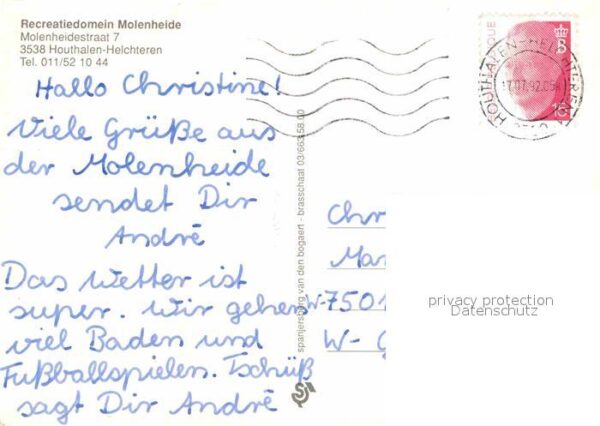 Recreatiedomein Molenheide
Molenheidestraat 7
3538 Houthalen-Helchteren
Tel. 011/52 10 44
Hallo Christine!
Viele Grüße aus
der Molenheide
sendet Dir
André
Das Wetter ist
super. Wir gehen
viel Baden und
Fußballspielen. Tschüß
sagt Dir André
spanjersberg van den bogaert - brasschaat 03/663.58.00
B
Chr
Mar
W-7501
W-
privacy protection
Datenschutz